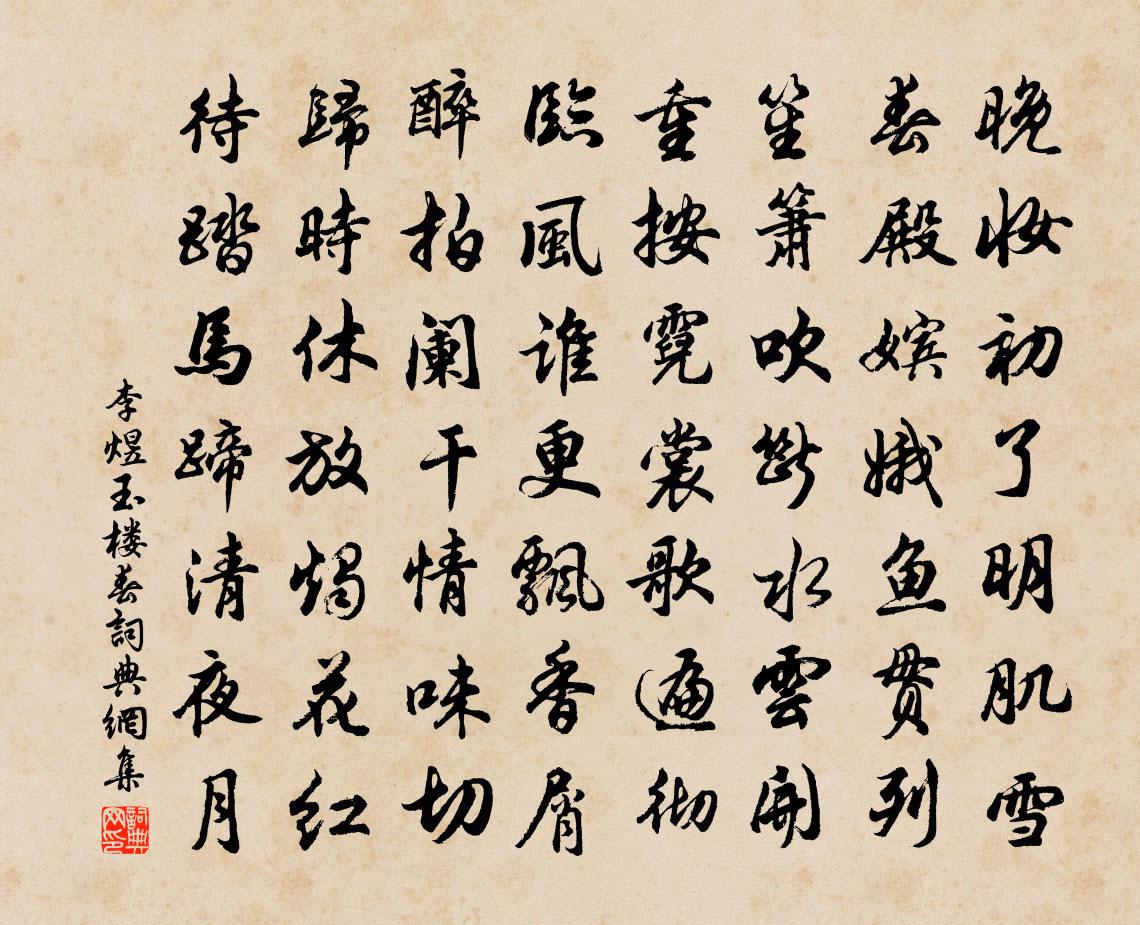 晚妆初了明肌雪
春殿嬪娥鱼贯列
笙簫吹斷水雲開
重按霓裳歌遍彻
臨風谁更飄香屑
醉拍阑干情味切
歸時休放燭花红
待踏馬蹄清夜月
李煜玉楼春詞典網集
詞典网印